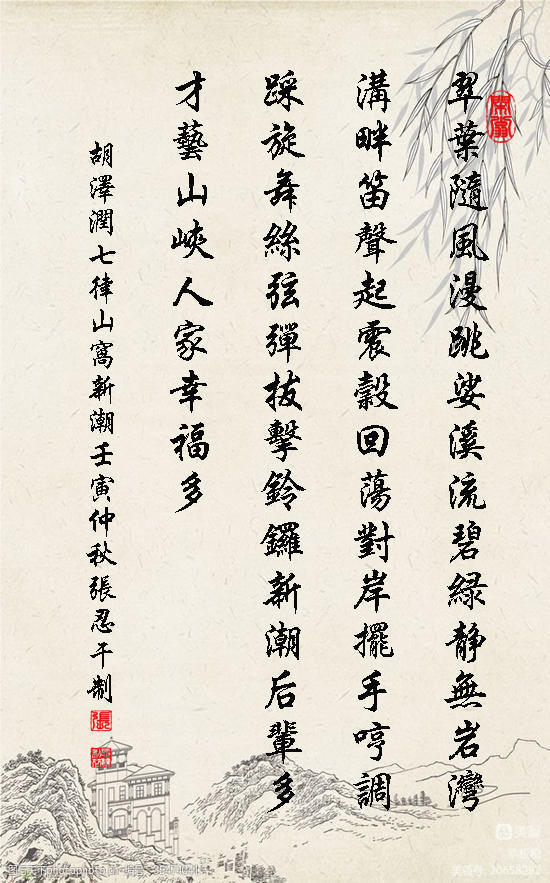 翠葉隨風漫跳娑溪流碧緑静無岩灣
溝畔笛聲起震穀回蕩對岸擺手哼調
踩旋舞絲弦彈拔擊鈴鑼新潮后輩多
才藝山峽人家幸福多
胡澤潤七律山窩新潮壬寅仲秋張忍干制
張
美篇